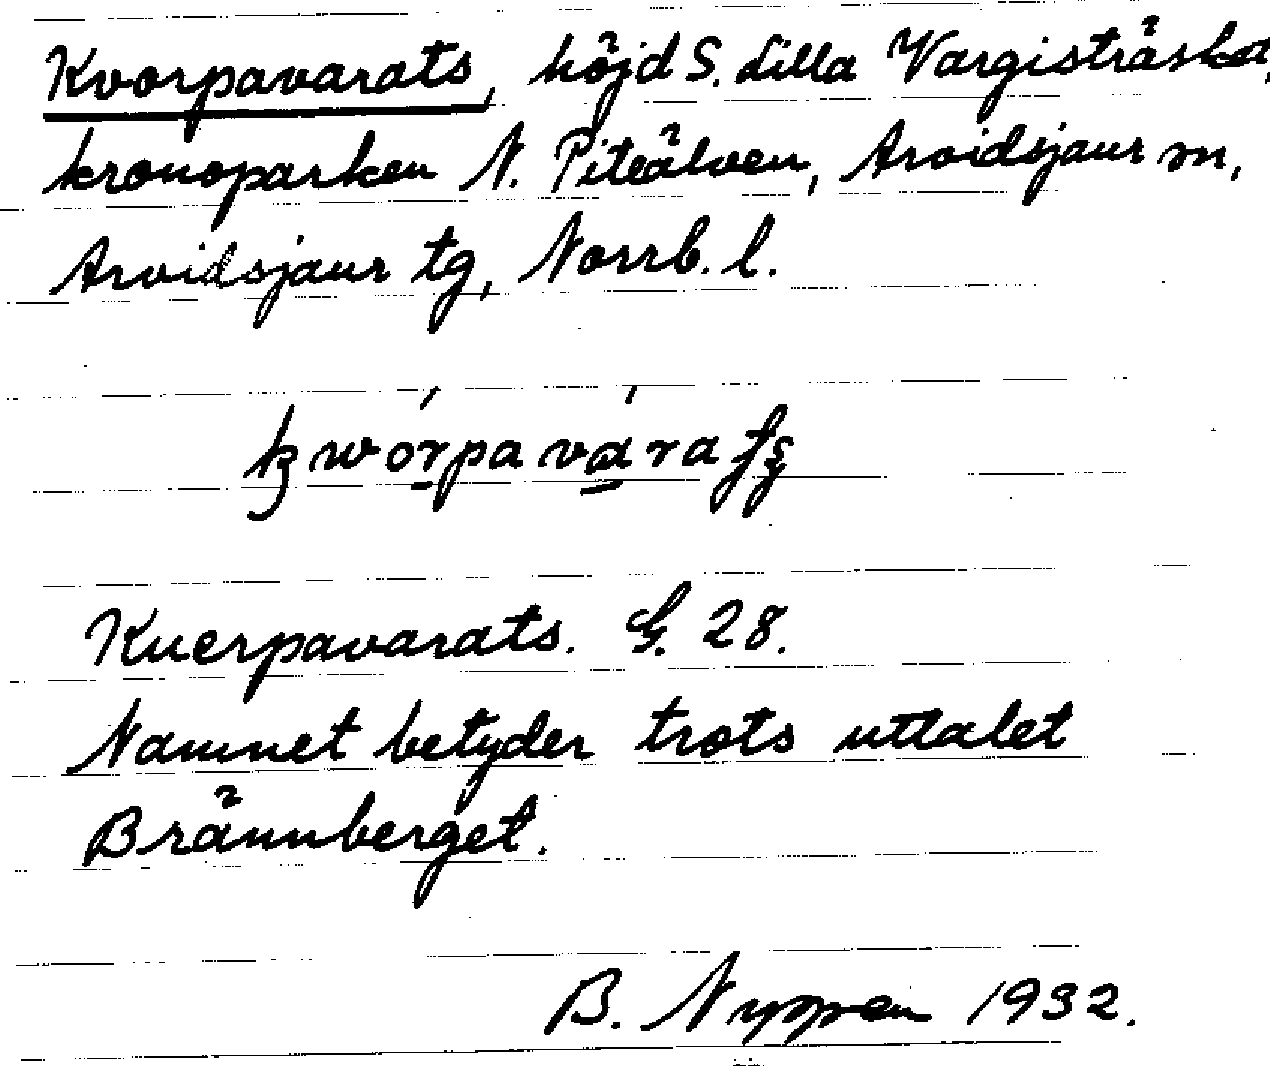 Kvorpavarats, höjd S. Lilla Vargisträsket,
kronoparken N. Piteälven, Arvidsjaur sn,
Arvidsjaur tg, Norrb. l.
Kuerpavarats. G. 28.
Namnet betyder trots uttalet
Brännberget.
B. Nyppen 1932.